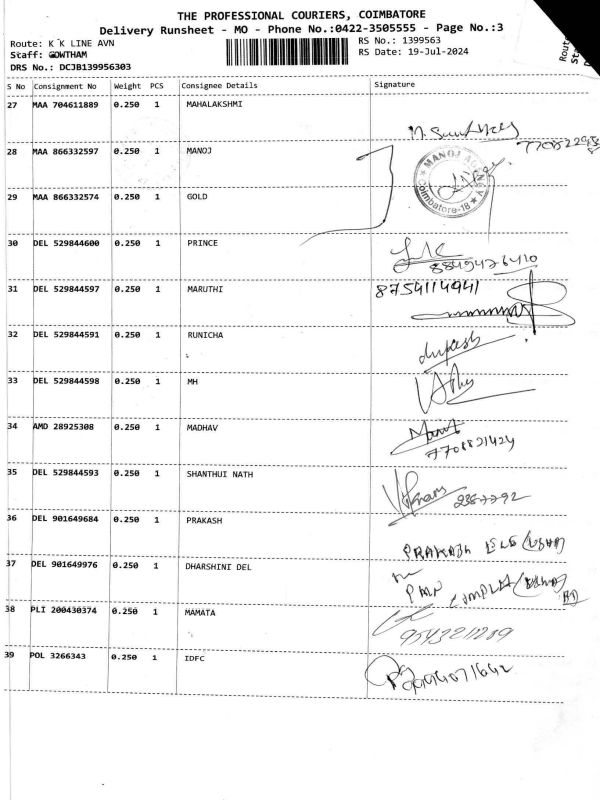 THE PROFESSIONAL COURIERS, COIMBATORE
Delivery Runsheet - MO - Phone No.:0422-3505555 - Page No.:3
Route: K K LINE AVN
RS No.: 1399563
Staff: GOWTHAM
RS Date: 19-Jul-2024
DRS No.: DCJB139956303
Route
S No Consignment No Weight PCS Consignee Details Signature
27 MAA 704611889 0.250 1 MAHALAKSHMI
28 MAA 866332597 0.250 1 MANOJ
MANOJ AGENCY
Coimbatore-18
29 MAA 866332574 0.250 1 GOLD
30 DEL 529844600 0.250 1 PRINCE
8849476410
31 DEL 529844597 0.250 1 MARUTHI 8754114941
32 DEL 529844591 0.250 1 RUNICHA
33 DEL 529844598 0.250 1 MH
34 AMD 28925308 0.250 1 MADHAV
7708821424
35 DEL 529844593 0.250 1 SHANTHUI NATH
36 DEL 901649684 0.250 1 PRAKASH
PRAKASH ELE
37 DEL 901649976 0.250 1 DHARSHINI DEL
38 PLI 200430374 0.250 1 MAMATA
9543211289
39 POL 3266343 0.250 1 IDFC